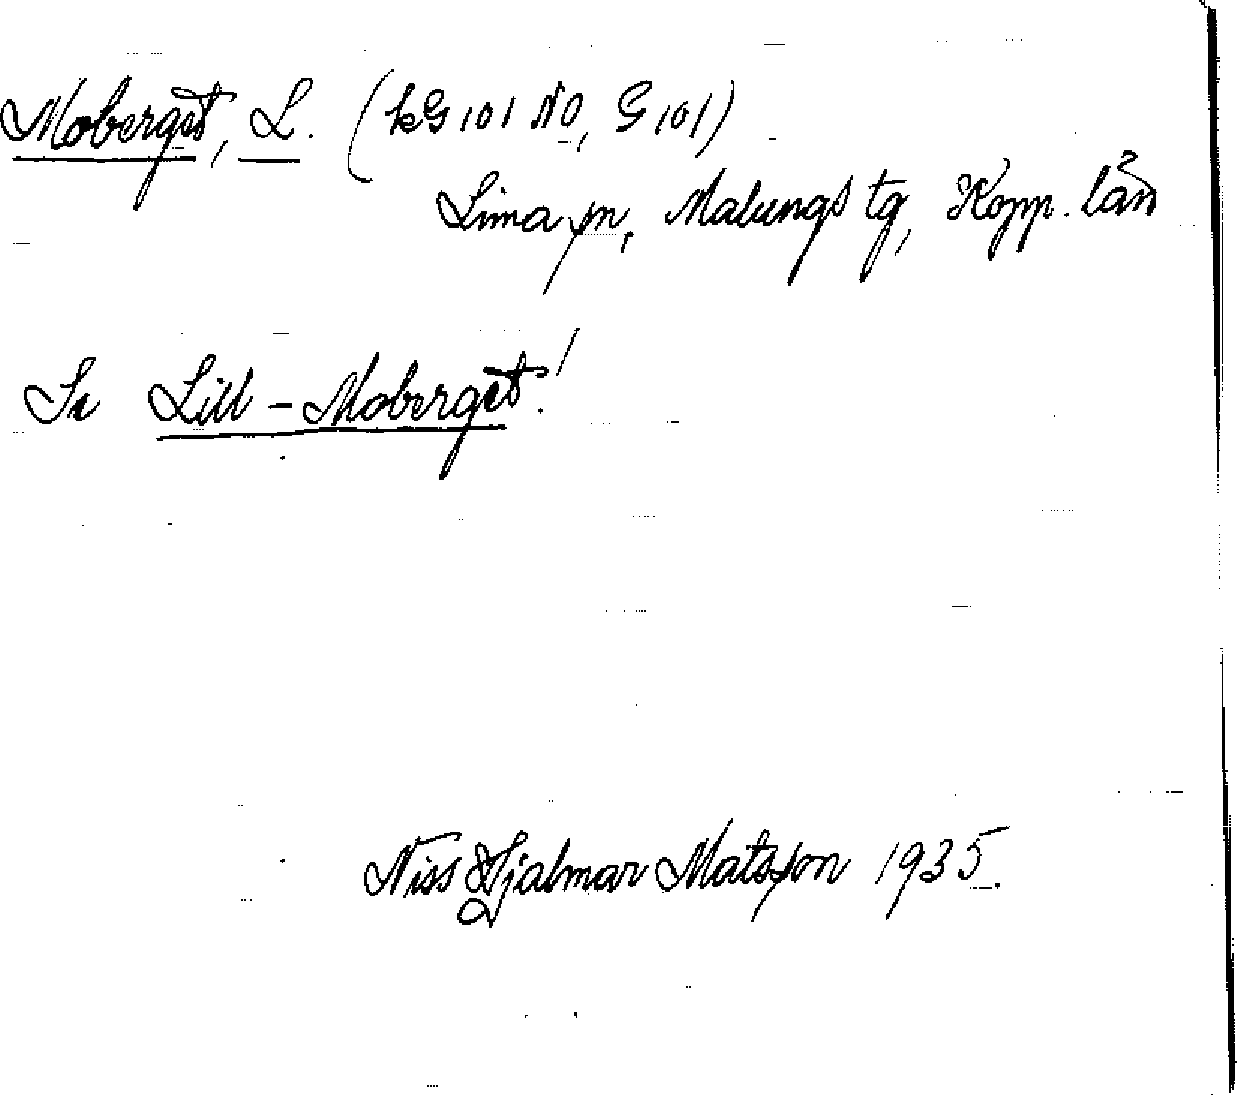 Moberget, L. (kG 101 NO, G 101)
Lima sn, Malungs tg, Kopp. län
Se Lill-Moberget!
Niss Hjalmar Matsson 1935.